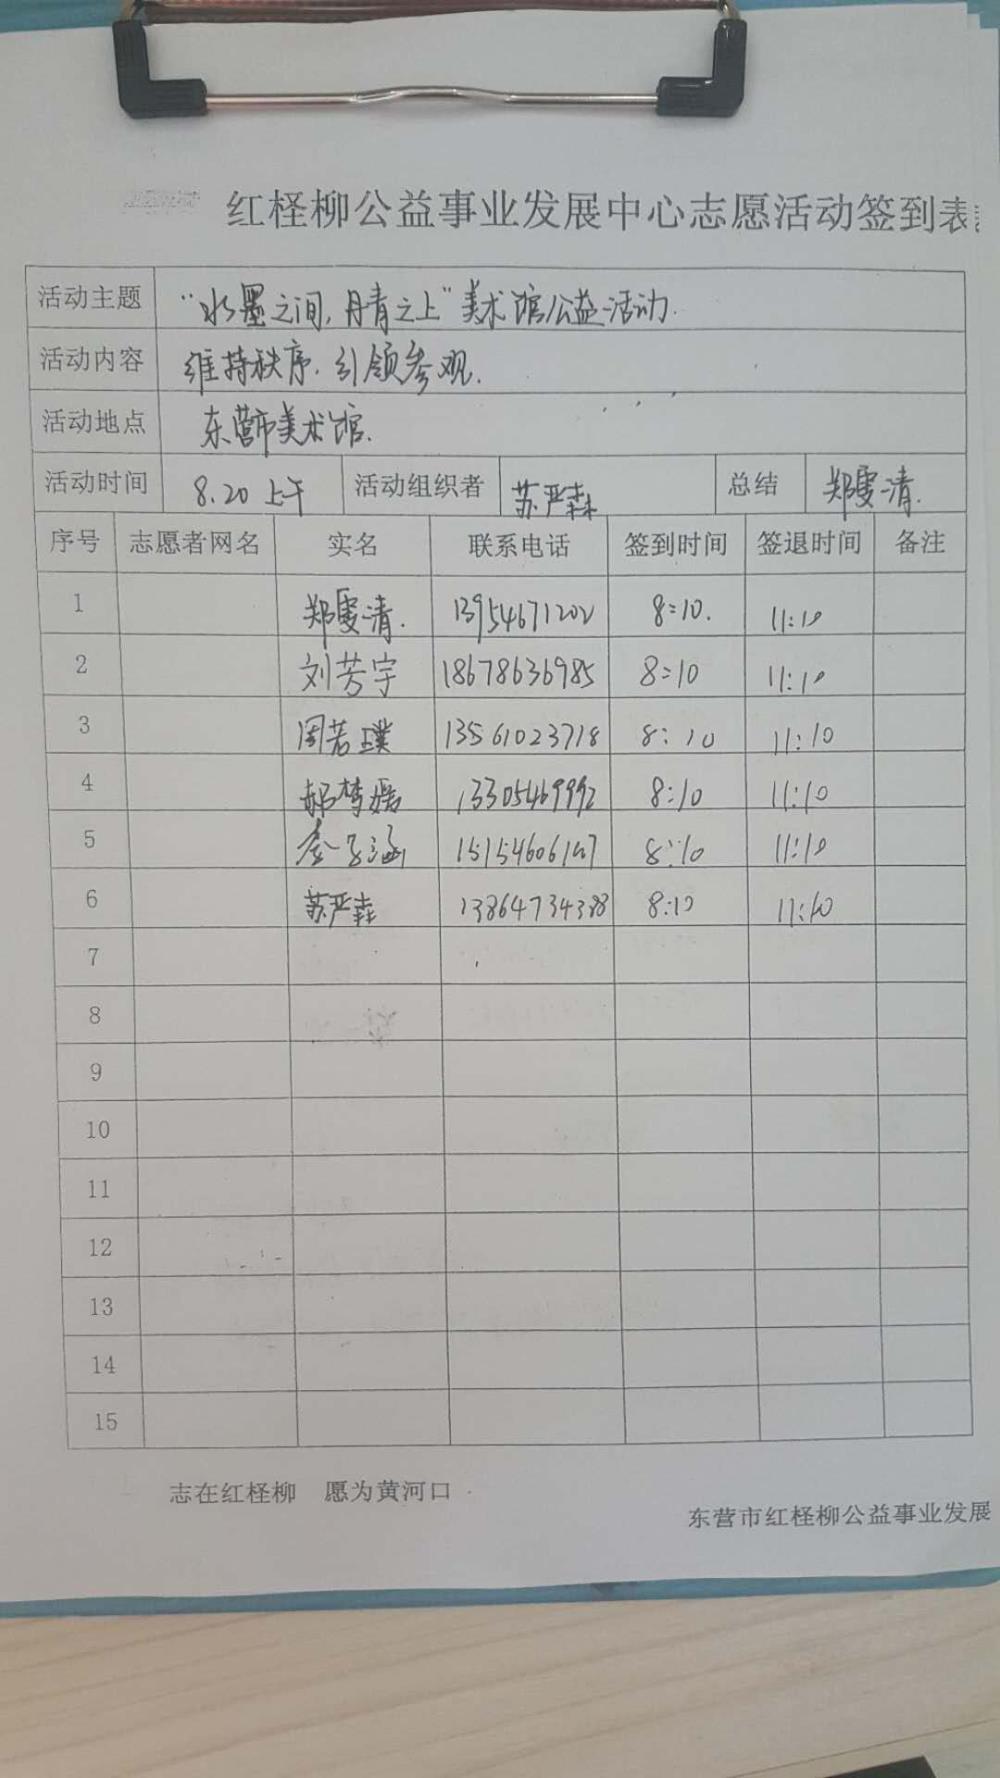 红柽柳公益事业发展中心志愿活动签到表
活动主题 "水墨之间,丹青之上"美术馆公益活动.
活动内容 维持秩序.引领参观.
活动地点 东营市美术馆.
活动时间 8.20上午 活动组织者 苏严森 总结 郑雯清.
序号 志愿者网名 实名 联系电话 签到时间 签退时间 备注
1 郑雯清. 13954671202 8:10. 11:10
2 刘芳宇 18678636985 8:10 11:10
3 周若璞 13561023718 8:10 11:10
4 郝梦媛 13305469992 8:10 11:10
5 子涵 8:10 11:10
6 苏严森 8:10 11:10
7
8
9
10
11
12
13
14
15
志在红柽柳 愿为黄河口
东营市红柽柳公益事业发展